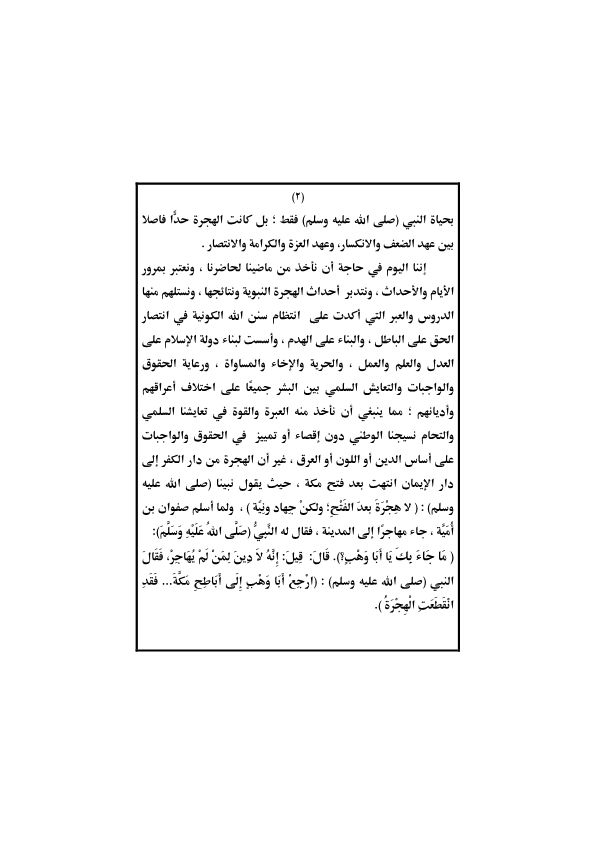 (٢)
بحياة النبي (صلى الله عليه وسلم) فقط ؛ بل كانت الهجرة حدًّا فاصلا
بين عهد الضعف والانكسار، وعهد العزة والكرامة والانتصار .
إننا اليوم في حاجة أن نأخذ من ماضينا لحاضرنا ، ونعتبر بمرور
الأيام والأحداث ، ونتدبر أحداث الهجرة النبوية ونتائجها ، ونستلهم منها
الدروس والعبر التي أكدت على انتظام سنن الله الكونية في انتصار
الحق على الباطل ، والبناء على الهدم ، وأسست لبناء دولة الإسلام على
العدل والعلم والعمل ، والحرية والإخاء والمساواة ، ورعاية الحقوق
والواجبات والتعايش السلمي بين البشر جميعًا على اختلاف أعراقهم
وأديانهم ؛ مما ينبغي أن نأخذ منه العبرة والقوة في تعايشنا السلمي
والتحام نسيجنا الوطني دون إقصاء أو تمييز في الحقوق والواجبات
على أساس الدين أو اللون أو العرق ، غير أن الهجرة من دار الكفر إلى
دار الإيمان انتهت بعد فتح مكة ، حيث يقول نبينا (صلى الله عليه
وسلم) : ( لا هِجْرَةَ بعدَ الفَتْحِ؛ ولكنْ جِهاد ونِيَّة ) ، ولما أسلم صفوان بن
أُمَيَّة ، جاء مهاجرًا إلى المدينة ، فقال له النَّبِيُّ (صَلَّى اللهُ عَلَيْهِ وَسَلَّمَ):
( مَا جَاءَ بِكَ يَا أَبَا وَهْبٍ؟). قَالَ: قِيلَ: إِنَّهُ لاَ دِينَ لِمَنْ لَمْ يُهَاجِرْ، فَقَالَ
النبي (صلى الله عليه وسلم) : (ارْجِعْ أَبَا وَهْبٍ إِلَى أَبَاطِحِ مَكَّةَ... فَقَدِ
انْقَطَعَتِ الْهِجْرَةُ ).